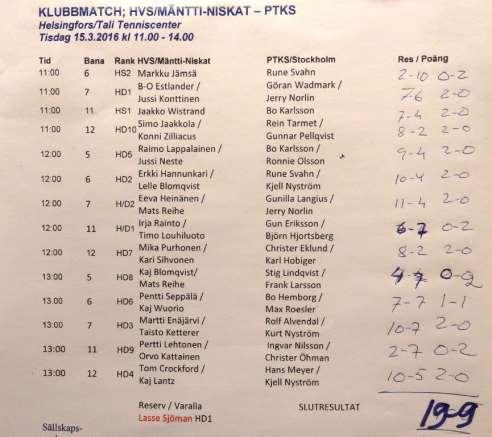 KLUBBMATCH; HVS/MÄNTTI-NISKAT – PTKS
Helsingfors/Tali Tenniscenter
Tisdag 15.3.2016 kl 11.00 - 14.00
Tid Bana Rank HVS/Mäntti-Niskat PTKS/Stockholm Res / Poäng
11:00 6 HS2 Markku Jämsä Rune Svahn 2-10 0-2
11:00 7 HD1 B-O Estlander / Göran Wadmark / 7-6 2-0
Jussi Konttinen Jerry Norlin
11:00 11 HS1 Jaakko Wistrand Bo Karlsson 7-4 2-0
11:00 12 HD10 Simo Jaakkola / Rein Tarmet / 8-2 2-0
Konni Zilliacus Gunnar Pellqvist
12:00 5 HD5 Raimo Lappalainen / Bo Karlsson / 9-4 2-0
Jussi Neste Ronnie Olsson
12:00 6 HD2 Erkki Hannunkari / Rune Svahn / 10-4 2-0
Lelle Blomqvist Kjell Nyström
12:00 7 H/D2 Eeva Heinänen / Gunilla Langius / 11-4 2-0
Mats Reihe Jerry Norlin
12:00 11 H/D1 Irja Rainto / Gun Eriksson / 6-7 0-2
Timo Louhiluoto Björn Hjortsberg
12:00 12 HD7 Mika Purhonen / Christer Eklund / 8-2 2-0
Kari Sihvonen Karl Hobiger
13:00 5 HD8 Kaj Blomqvist/ Stig Lindqvist / 4-7 0-2
Mats Reihe Frank Larsson
13:00 6 HD6 Pentti Seppälä / Bo Hemborg / 7-7 1-1
Kaj Wuorio Max Roesler
13:00 7 HD3 Martti Enäjärvi / Rolf Alvendal / 10-7 2-0
Taisto Ketterer Kurt Nyström
13:00 11 HD9 Pertti Lehtonen / Ingvar Nilsson / 2-7 0-2
Orvo Kattainen Christer Öhman
13:00 12 HD4 Tom Crockford / Hans Meyer / 10-5 2-0
Kaj Lantz Kjell Nyström
Reserv / Varalla SLUTRESULTAT 19-9
Lasse Sjöman HD1
Sällskaps-